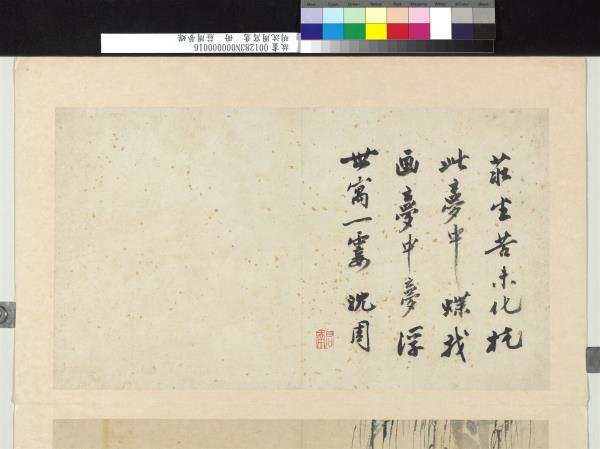 Blue Cyan Green Yellow Red Magenta White 3/Color Black
故畫 001283N000000016
明沈周寫意 冊 莊周夢蝶
莊生苦未化托
此夢中蝶我
画夢中夢浮
世寓一霎 沈周